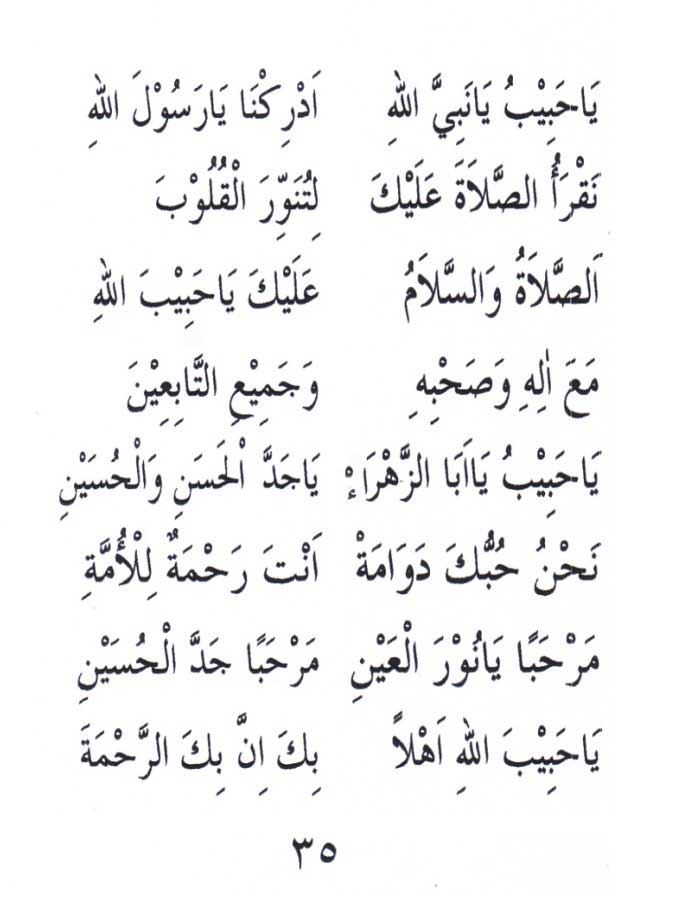 يَاحَبِيْبُ يَانَبِيَّ اللهِ اَدْرِكْنَا يَارَسُوْلَ اللهِ
نَقْرَأُ الصَّلَاةَ عَلَيْكَ لِتُنَوِّرَ الْقُلُوْبَ
اَلصَّلَاةُ وَالسَّلَامُ عَلَيْكَ يَاحَبِيْبَ اللهِ
مَعَ اٰلِهِ وَصَحْبِهِ وَجَمِيْعِ التَّابِعِيْنَ
يَاحَبِيْبُ يَااَبَا الزَّهْرَاءْ يَاجَدَّ الْحَسَنِ وَالْحُسَيْنِ
نَحْنُ حُبُّكَ دَوَامَةْ اَنْتَ رَحْمَةٌ لِلْأُمَّةِ
مَرْحَبًا يَانُوْرَ الْعَيْنِ مَرْحَبًا جَدَّ الْحُسَيْنِ
يَاحَبِيْبَ اللهِ اَهْلاً بِكَ اِنَّ بِكَ الرَّحْمَةَ
٣٥